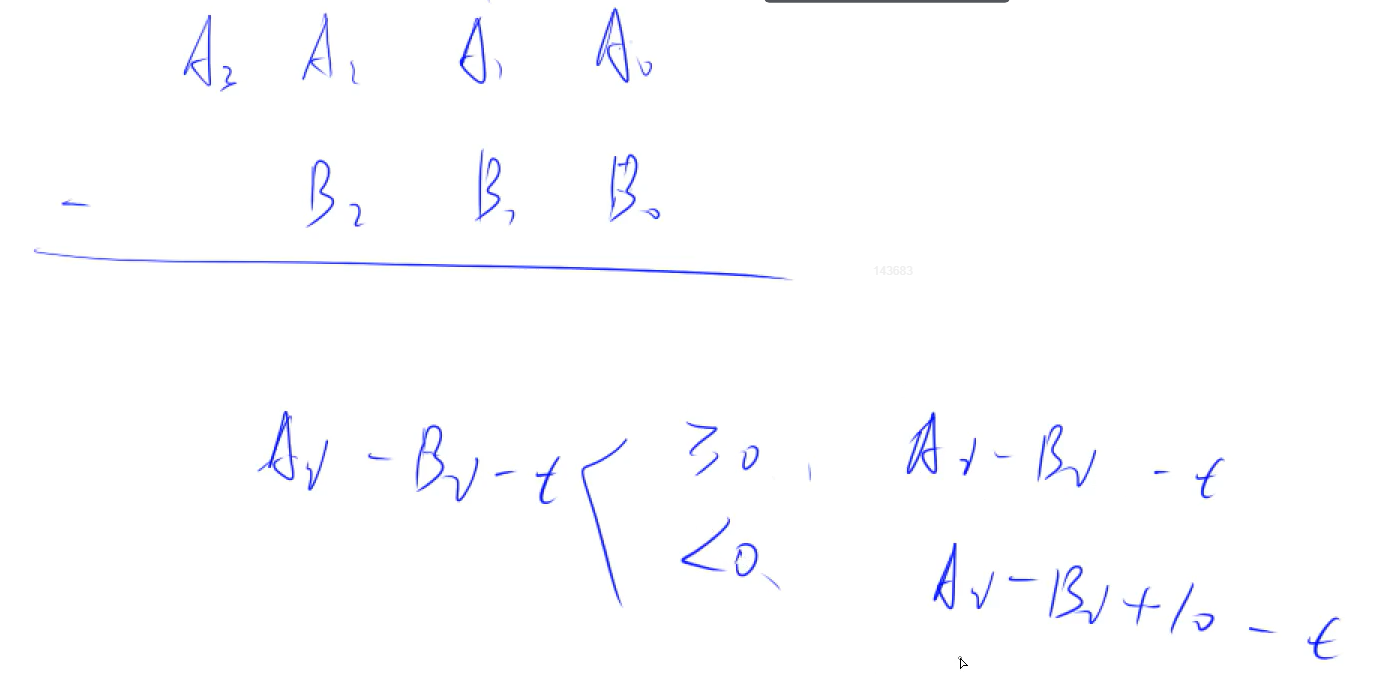 A₃ A₂ A₁ A₀
- B₂ B₁ B₀
143683
Aᵢ - Bᵢ - t ≥ 0, Aᵢ - Bᵢ - t
< 0, Aᵢ - Bᵢ + 10 - t